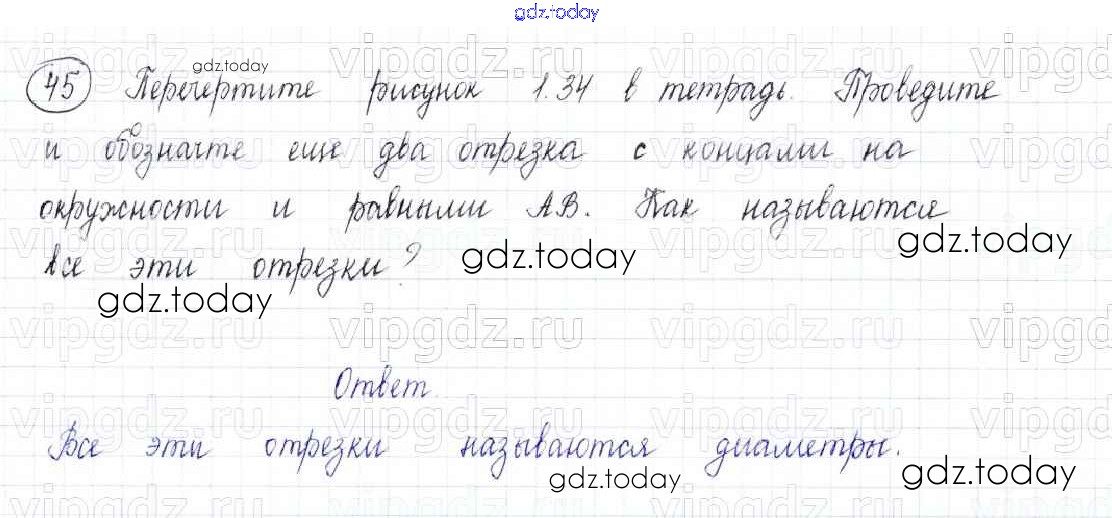 gdz.today
45 Перечертите рисунок 1.34 в тетрадь. Проведите
gdz.today
и обозначте еще два отрезка с концами на
окружности и равными АВ. Как называются
все эти отрезки?
gdz.today
gdz.today
gdz.today
vipgdz.ru
Ответ.
Все эти отрезки называются диаметры.
gdz.today
gdz.today